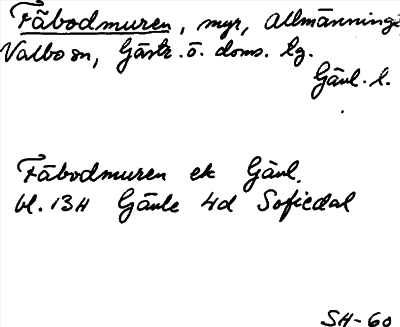 Fäbodmuren, myr, Allmänning
Valbo sn, Gästr. ö. doms. lg.
Gävl. l.
Fäbodmuren ek Gävl.
bl. 13H Gävle 4d Sofiedal
SH-60